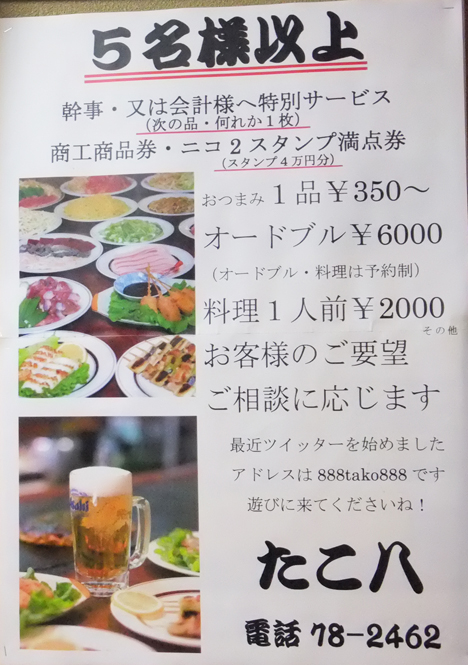 5名様以上
幹事・又は会計様へ特別サービス
(次の品・何れか1枚)
商工商品券・ニコ2スタンプ満点券
(スタンプ4万円分)
おつまみ1品¥350〜
オードブル¥6000
(オードブル・料理は予約制)
料理1人前¥2000
その他
お客様のご要望
ご相談に応じます
最近ツイッターを始めました
アドレスは888tako888です
遊びに来てくださいね!
たこ八
電話 78-2462